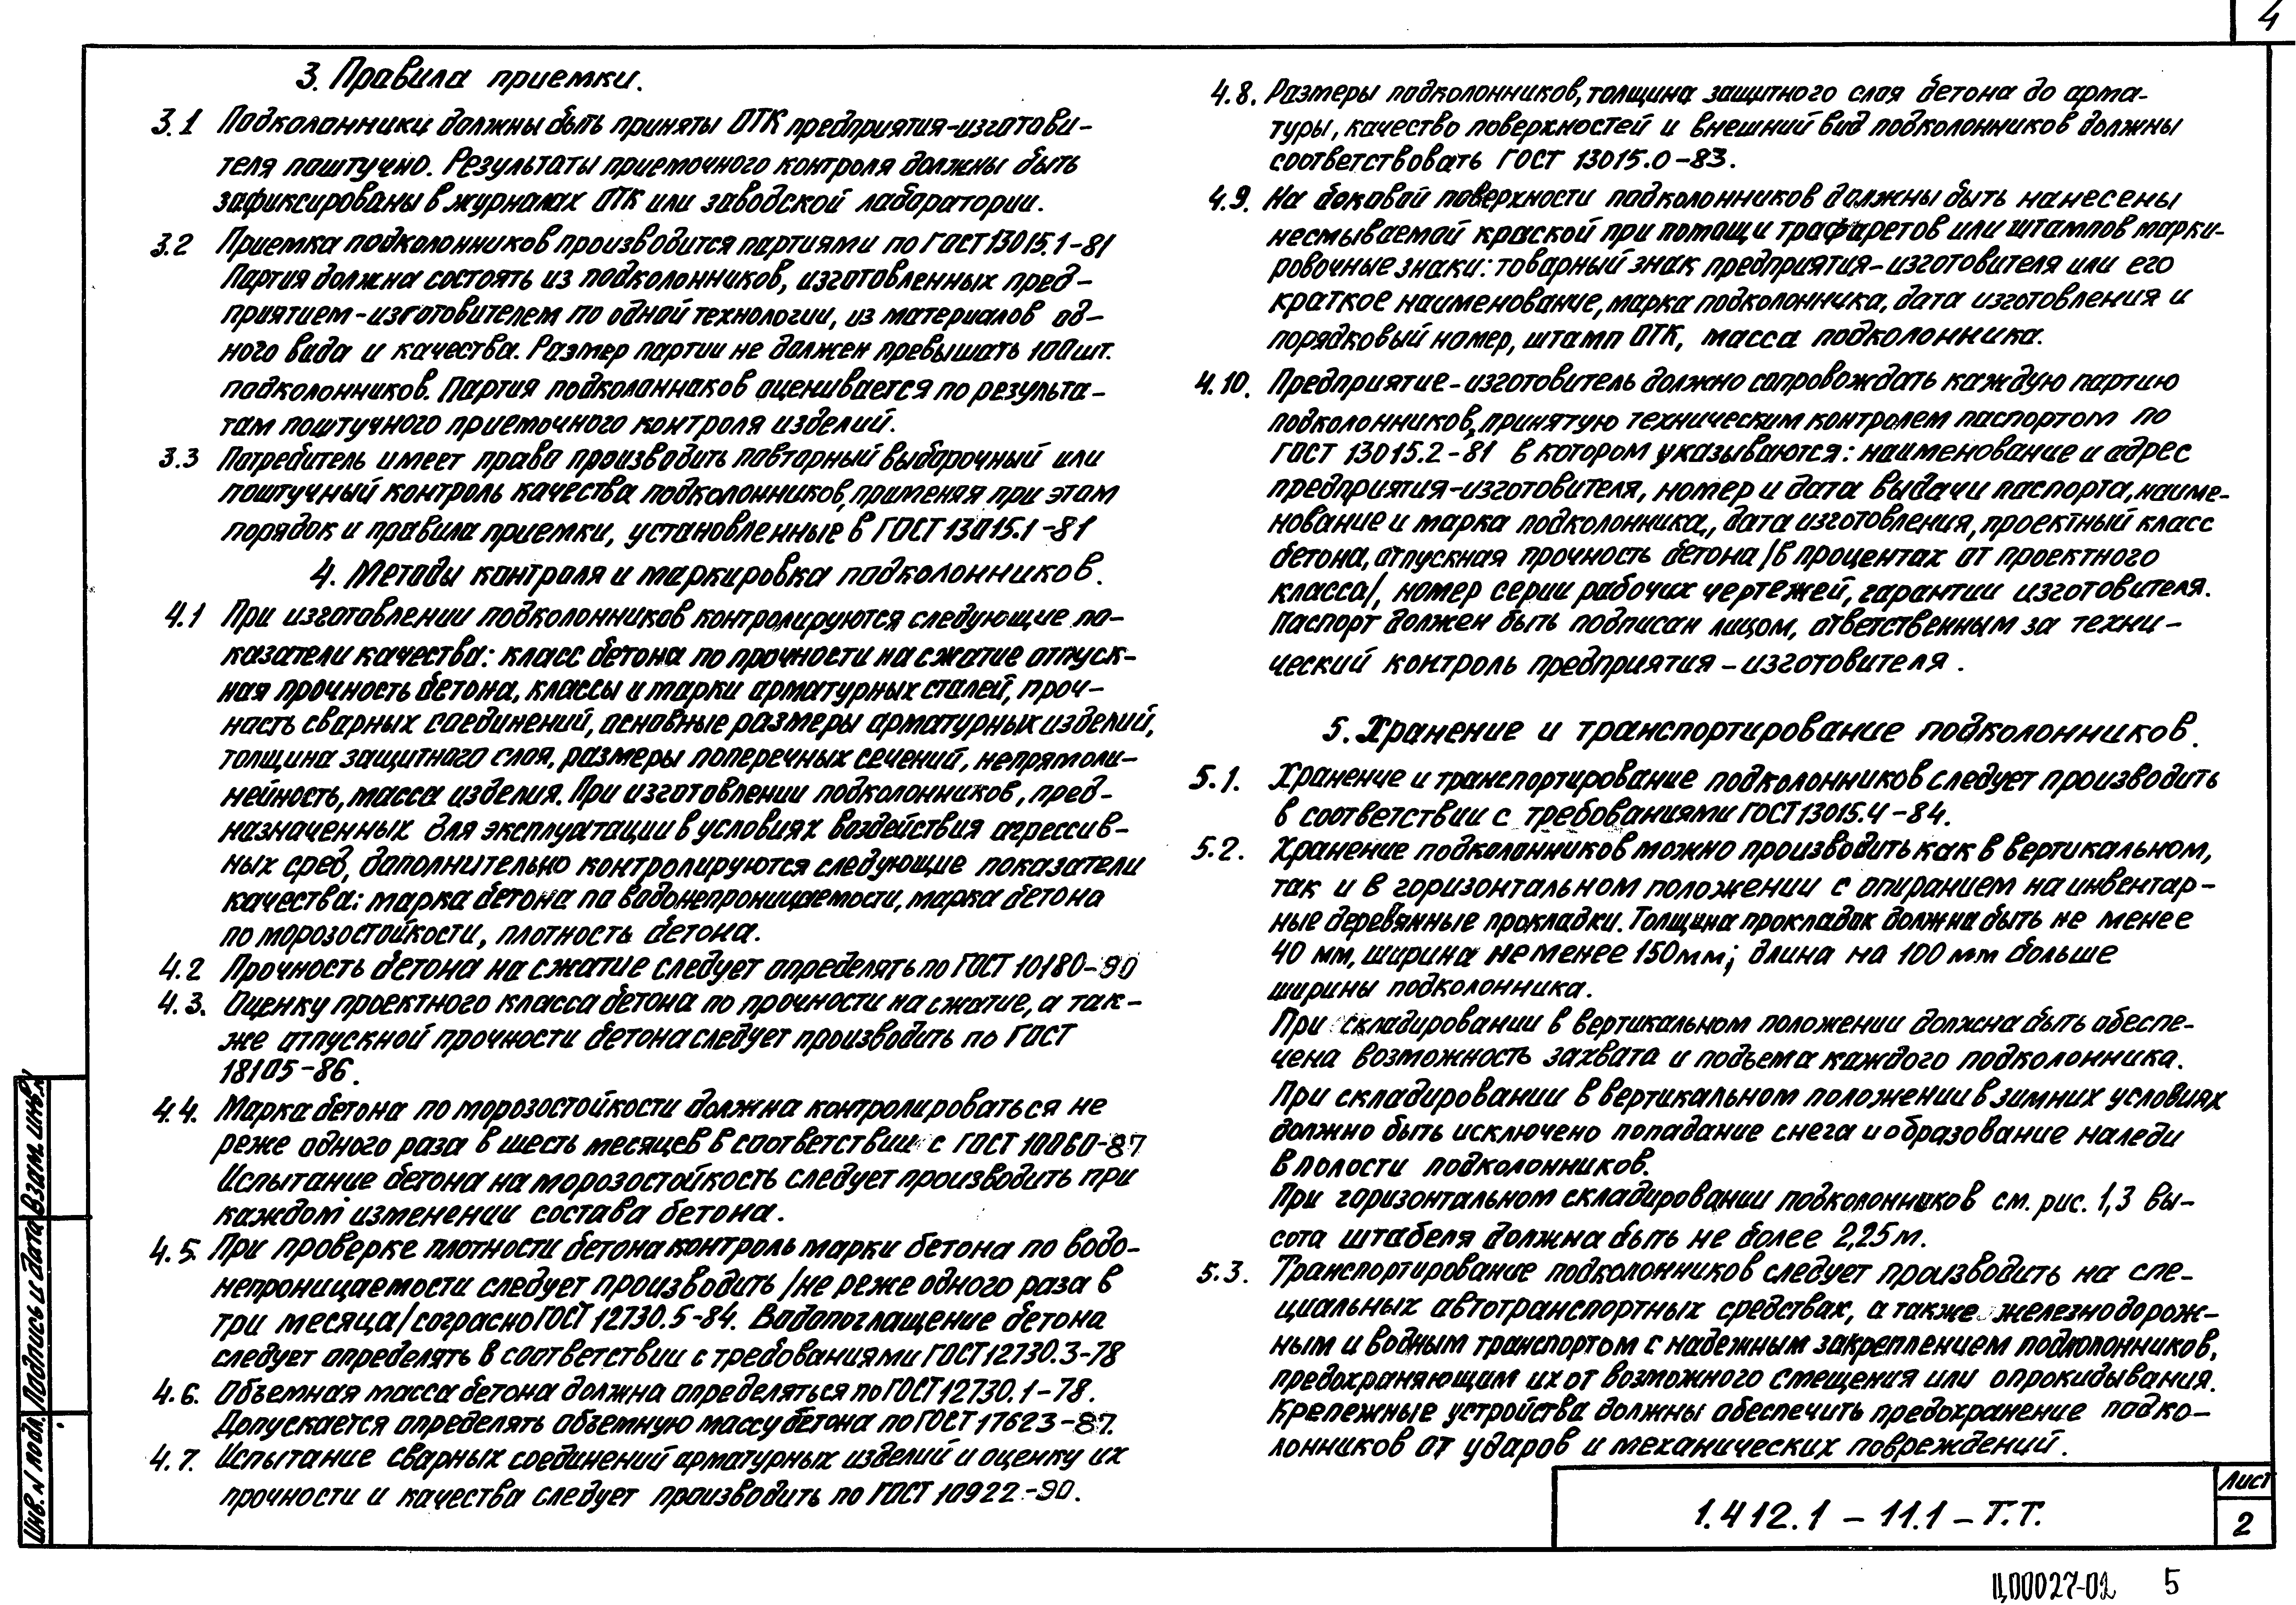 4
3. Правила приемки.
3.1 Подколонники должны быть приняты ОТК предприятия-изготови-
теля поштучно. Результаты приемочного контроля должны быть
зафиксированы в журналах ОТК или заводской лаборатории.
3.2 Приемка подколонников производится партиями по ГОСТ 13015.1-81
Партия должна состоять из подколонников, изготовленных пред-
приятием-изготовителем по одной технологии, из материалов од-
ного вида и качества. Размер партии не должен превышать 100шт.
подколонников. Партия подколонников оценивается по результа-
там поштучного приемочного контроля изделий.
3.3 Потребитель имеет право производить повторный выборочный или
поштучный контроль качества подколонников, применяя при этом
порядок и правила приемки, установленные в ГОСТ 13015.1-81
4. Методы контроля и маркировка подколонников.
4.1 При изготовлении подколонников контролируются следующие по-
казатели качества: класс бетона по прочности на сжатие отпуск-
ная прочность бетона, классы и марки арматурных сталей, проч-
ность сварных соединений, основные размеры арматурных изделий,
толщина защитного слоя, размеры поперечных сечений, непрямоли-
нейность, масса изделия. При изготовлении подколонников, пред-
назначенных для эксплуатации в условиях воздействия агрессив-
ных сред, дополнительно контролируются следующие показатели
качества: марка бетона по водонепроницаемости, марка бетона
по морозостойкости, плотность бетона.
4.2 Прочность бетона на сжатие следует определять по ГОСТ 10180-90
4.3. Оценку проектного класса бетона по прочности на сжатие, а так-
же отпускной прочности бетона следует производить по ГОСТ
18105-86.
4.4. Марка бетона по морозостойкости должна контролироваться не
реже одного раза в шесть месяцев в соответствии с ГОСТ 10060-87
Испытание бетона на морозостойкость следует производить при
каждом изменении состава бетона.
4.5. При проверке плотности бетона контроль марки бетона по водо-
непроницаемости следует производить /не реже одного раза в
три месяца/ сограсно ГОСТ 12730.5-84. Водопоглащение бетона
следует определять в соответствии с требованиями ГОСТ 12730.3-78
4.6. Объемная масса бетона должна определяться по ГОСТ 12730.1-78.
Допускается определять объемную массу бетона по ГОСТ 17623-87.
4.7. Испытание сварных соединений арматурных изделий и оценку их
прочности и качества следует производить по ГОСТ 10922-90.
4.8. Размеры подколонников, толщина защитного слоя бетона до арма-
туры, качество поверхностей и внешний вид подколонников должны
соответствовать ГОСТ 13015.0-83.
4.9. На боковой поверхности подколонников должны быть нанесены
несмываемой краской при помощи трафаретов или штампов марки-
ровочные знаки: товарный знак предприятия-изготовителя или его
краткое наименование, марка подколонника, дата изготовления и
порядковый номер, штамп ОТК, масса подколонника.
4.10. Предприятие-изготовитель должно сопровождать каждую партию
подколонников, принятую техническим контролем паспортом по
ГОСТ 13015.2-81 в котором указываются: наименование и адрес
предприятия-изготовителя, номер и дата выдачи паспорта, наиме-
нование и марка подколонника, дата изготовления, проектный класс
бетона, отпускная прочность бетона /в процентах от проектного
класса/, номер серии рабочих чертежей, гарантии изготовителя.
Паспорт должен быть подписан лицом, ответственным за техни-
ческий контроль предприятия-изготовителя.
5. Хранение и транспортирование подколонников.
5.1. Хранение и транспортирование подколонников следует производить
в соответствии с требованиями ГОСТ 13015.4-84.
5.2. Хранение подколонников можно производить как в вертикальном,
так и в горизонтальном положении с опиранием на инвентар-
ные деревянные прокладки. Толщина прокладок должна быть не менее
40 мм, ширина не менее 150мм; длина на 100 мм больше
ширины подколонника.
При складировании в вертикальном положении должна быть обеспе-
чена возможность захвата и подъема каждого подколонника.
При складировании в вертикальном положении в зимних условиях
должно быть исключено попадание снега и образование наледи
в полости подколонников.
При горизонтальном складировании подколонников см. рис. 1,3 вы-
сота штабеля должна быть не более 2,25м.
5.3. Транспортирование подколонников следует производить на спе-
циальных автотранспортных средствах, а также железнодорож-
ным и водным транспортом с надежным закреплением подколонников,
предохраняющим их от возможного смещения или опрокидывания.
Крепежные устройства должны обеспечить предохранение подко-
лонников от ударов и механических повреждений.
Инв. N подл.
Подпись и дата
Взам. инв. N
1.412.1-11.1-Т.Т.
Лист
2
Ц00027-02 5